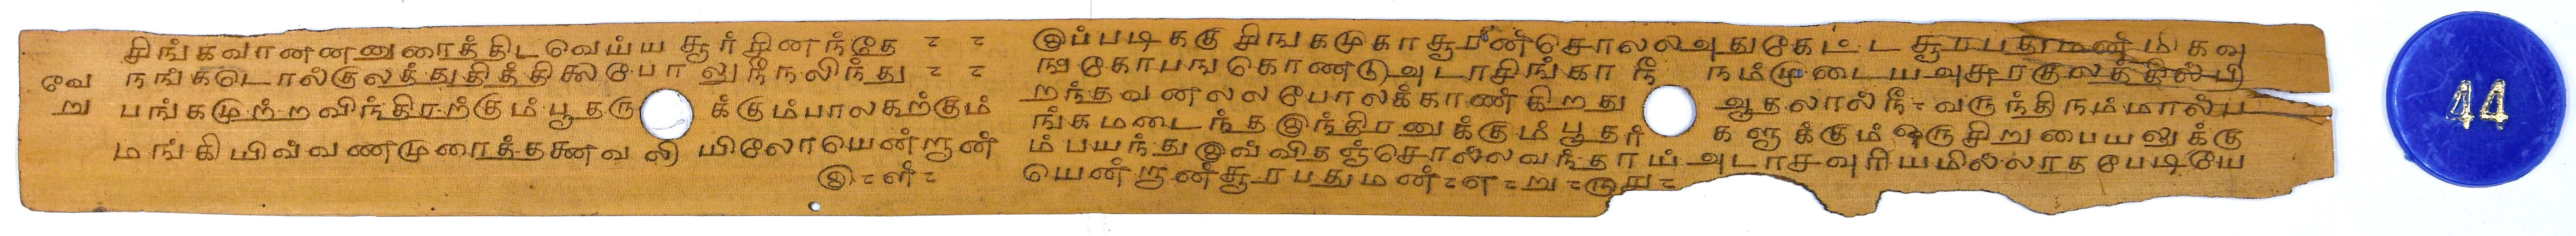 சிங்கவானனனுரைத்திடவெய்ய சூர் சினந்தே
நங்கடொல்குலத்துதித்திலைபோலுநீநலிந்து
வே
று
பங்கமுற்றவிந்திரற்கும்பூதருக்கும்பாலகற்கும்
மங்கி யிவ்வணமுரைத்தனைவலி யிலோயென்றான்
இப்படிக்கு சிங்கமுகாசூரன்சொலலஅதுகேட்ட சூரபதுமன் மிகவு
ஙகோபங்கொண்டுஅடாசிங்கா நீ நம்முடையஅசுரகுலத்தில்பி
றந்தவனலலபோலக்காண்கிறது ஆதலால்நீவருந்திநம்மால்ப
ங்கமடைந்தஇந்திரனுக்கும்பூதர் களுக்கும்ஒருசிறுபையனுக்கு
ம்பயந்துஇவ்விதஞ்சொல்லவந்தாய் அடாசவுரியமில்லாதபேடியே
யென்றான்சூரபதுமன்
44